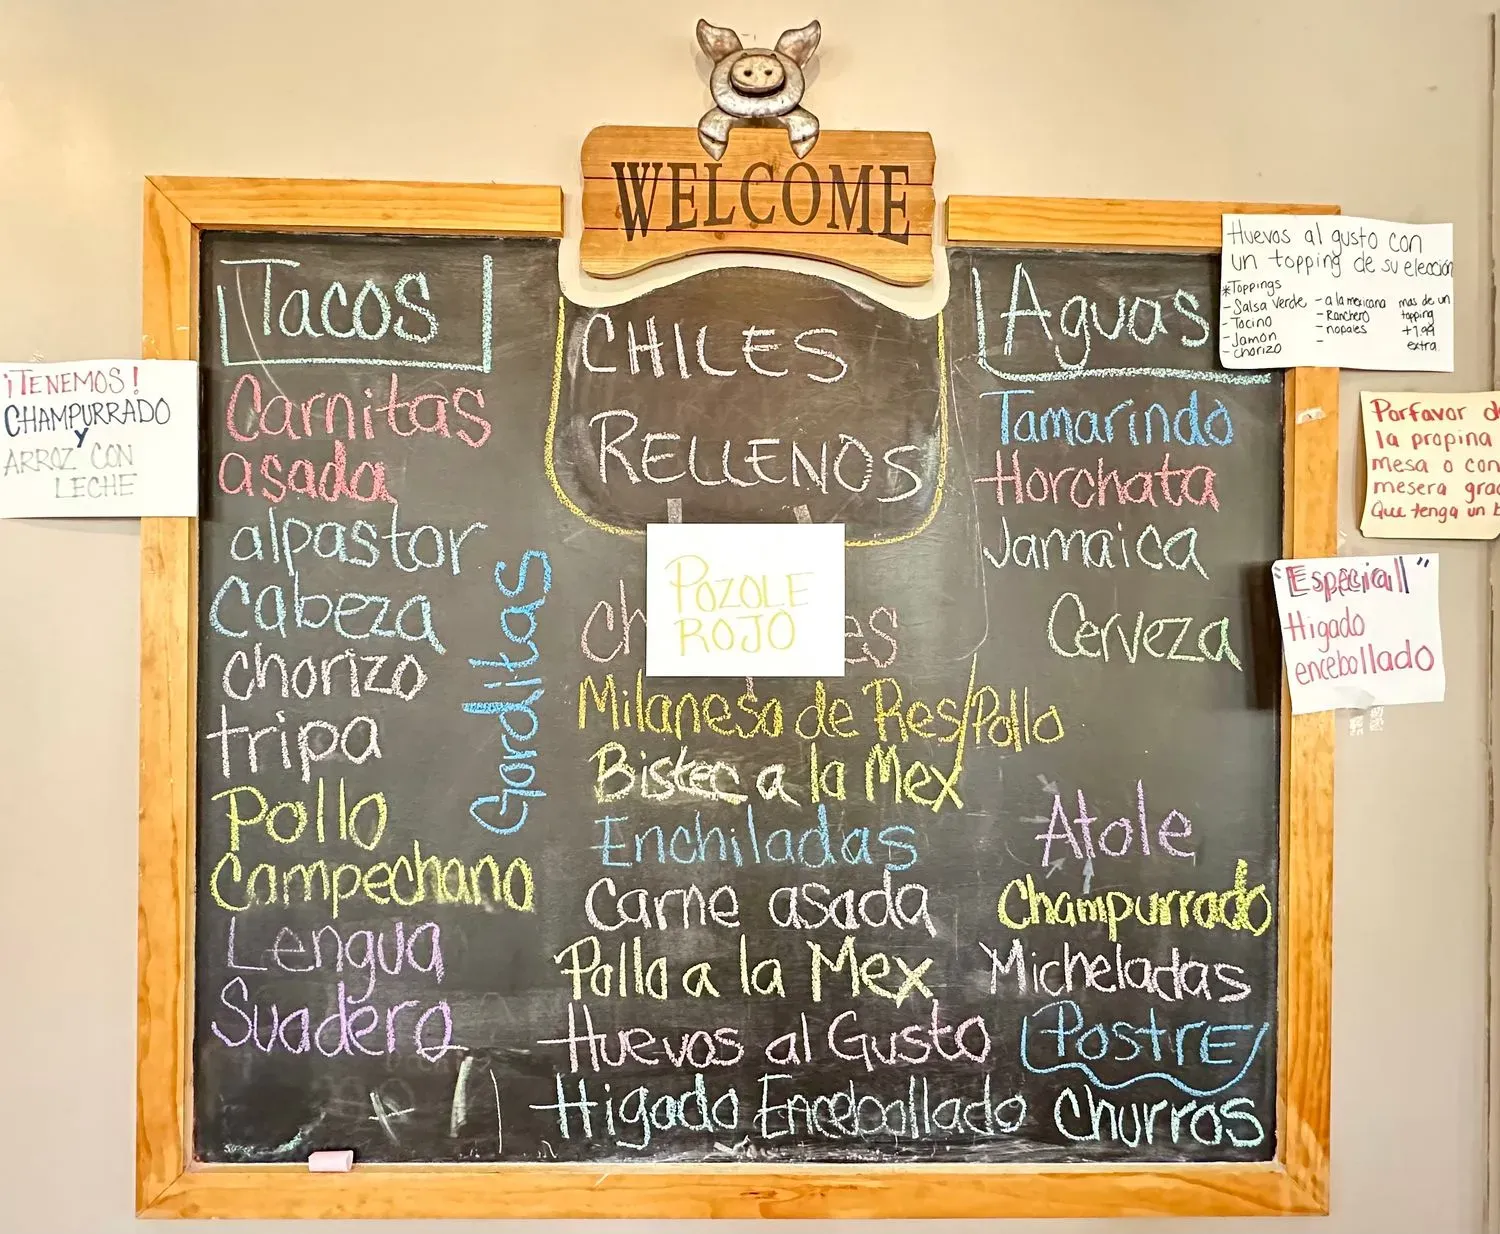 WELCOME
Tacos
Carnitas
asada
alpastor
Cabeza
chorizo
tripa
Pollo
Campechano
Lengua
Suadero
Gorditas
CHILES
RELLENOS
POZOLE
ROJO
Milanesa de Res/Pollo
Bistec a la Mex
Enchiladas
Carne asada
Pollo a la Mex
Huevos al Gusto
Higado Encebollado
Aguas
Tamarindo
Horchata
Jamaica
Cerveza
Atole
Champurrado
Micheladas
Postre
Churros
¡TENEMOS!
CHAMPURRADO
y
ARROZ CON
LECHE
Huevos al gusto con
un topping de su elección
*Toppings
- Salsa Verde
- Tocino
- Jamon
- chorizo
- a la mexicana
- Ranchero
- nopales
-
mas de un
topping
+1.99
extra.
Porfavor
la propina
mesa o con
mesera
Que tenga un
"Especial"
Higado
encebollado